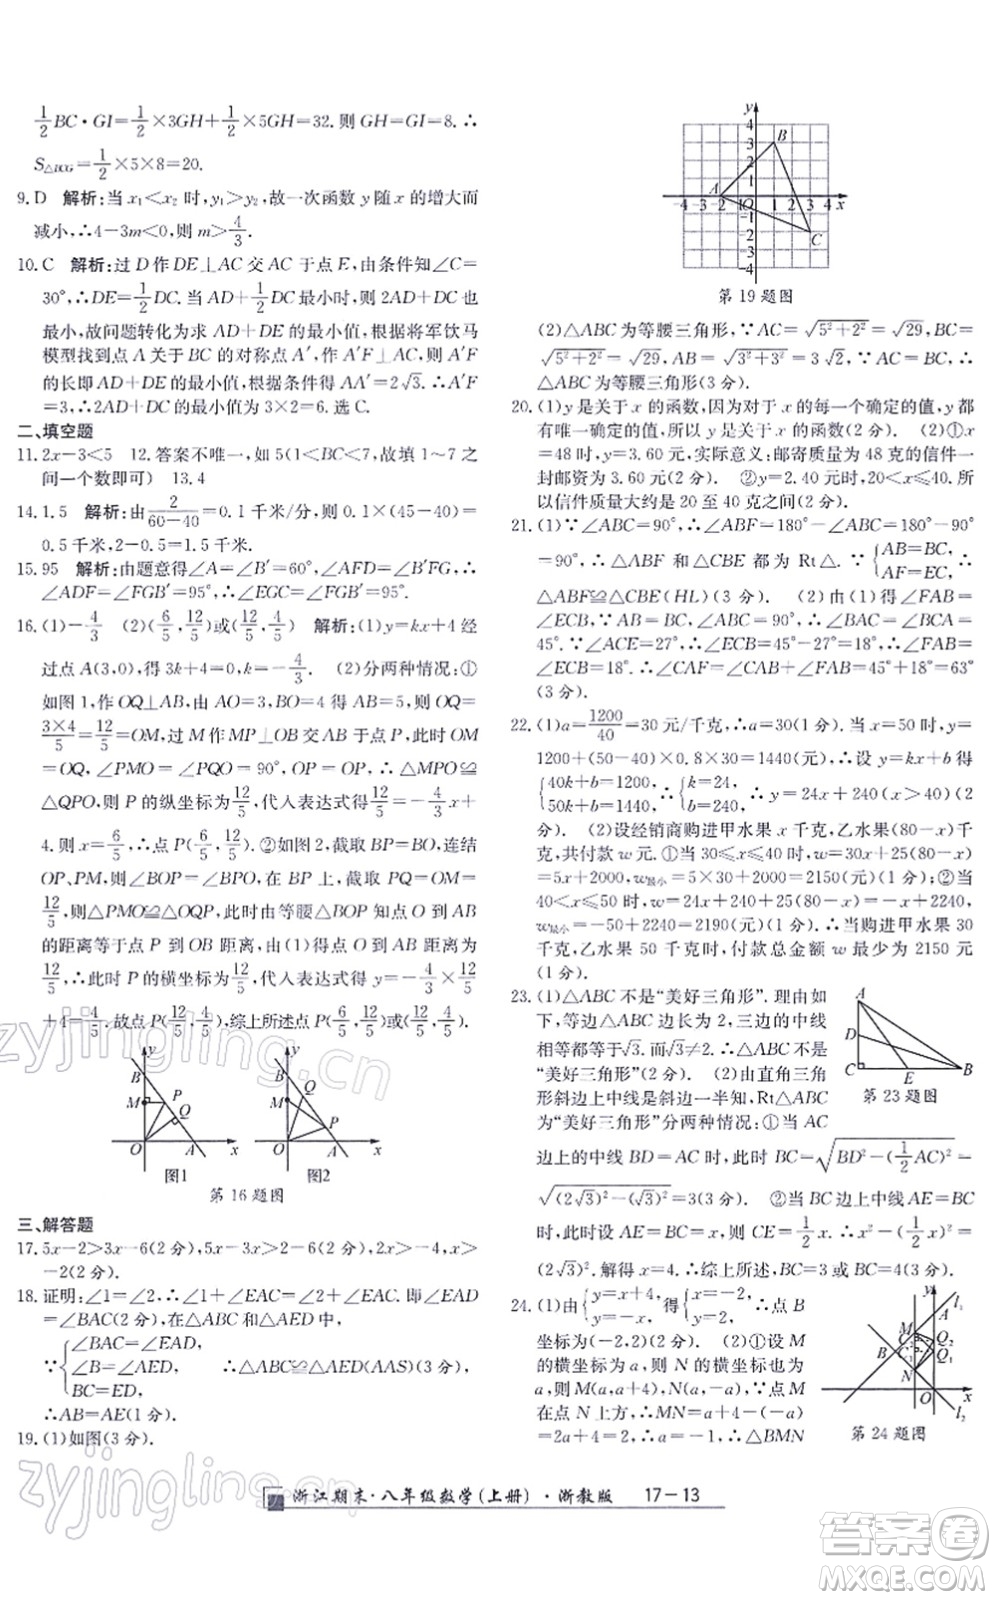 1/2BC·GI=1/2×3GH+1/2×5GH=32.则GH=GI=8.∴
S△BCG=1/2×5×8=20.
9.D 解析:当x₁<x₂时,y₁>y₂,故一次函数y随x的增大而
减小,∴4-3m<0,则m>4/3.
10.C 解析:过D作DE⊥AC交AC于点E,由条件知∠C=
30°,∴DE=1/2DC.当AD+1/2DC最小时,则2AD+DC也
最小,故问题转化为求AD+DE的最小值,根据将军饮马
模型找到点A关于BC的对称点A′,则AD+DE=A′F
的长即为AD+DE的最小值,根据条件得AA′=2√3.∴A′F
=3,∴2AD+DC的最小值为3×2=6.选C.
二、填空题
11.2x-3<5 12.答案不唯一,如5(1<BC<7,故填1~7之
间一个数即可) 13.4
14.1.5 解析:由2/(60-40)=0.1千米/分,则0.1×(45-40)=
0.5千米,2-0.5=1.5千米.
15.95 解析:由题意得∠A=∠B′=60°,∠AFD=∠FGB′,∴
∠ADF=∠FGB′=95°,∴∠EGC=∠FGB′=95°.
16.(1)-4/3 (2)(6/5,12/5)或(12/5,4/5) 解析:(1)y=kx+4经
过点A(3,0),得3k+4=0,k=-4/3. (2)分两种情况:①
如图1,作OQ⊥AB,由AO=3,BO=4得AB=5,则OQ=
3×4/5=12/5=OM,过M作MP⊥OB交AB于点P,此时OM
=OQ,∠PMO=∠PQO=90°,OP=OP,∴△MPO≌
△QPO,则P的纵坐标为12/5,代入表达式得12/5=-4/3x+
4.则x=6/5,∴点P(6/5,12/5).②如图2,截取BP=BO,连结
OP,PM,则∠BOP=∠BPO,在BP上截取PQ=OM=
12/5,则△PMO≌△OQP,此时由等腰△BOP知点O到AB
的距离等于点P到OB距离,由(1)得点O到AB距离为
12/5,∴此时P的横坐标为12/5,代入表达式得y=-4/3×12/5
+4=4/5.故点P(12/5,4/5),综上所述点P(6/5,12/5)或(12/5,4/5).
y B M P Q O A x 图1
y B Q M P O A x 图2
第16题图
三、解答题
17.5x-2>3x-6(2分),5x-3x>2-6(2分),2x>-4,x>
-2(2分).
18.证明:∠1=∠2,∴∠1+∠EAC=∠2+∠EAC.即∠EAD=
∠BAC(2分),在△ABC和△AED中,
∵{∠BAC=∠EAD,
∠B=∠AED, ∴△ABC≌△AED(AAS)(3分),
BC=ED,
∴AB=AE(1分).
19.(1)如图(3分).
y 4 3 2 1 B A O -4 -3 -2 1 2 3 4 x -1 -2 -3 -4 C
第19题图
(2)△ABC为等腰三角形,∵AC=√(5²+2²)=√29,BC=
√(5²+2²)=√29,AB=√(3²+3²)=3√2,∵AC=BC,∴
△ABC为等腰三角形(3分).
20.(1)y是关于x的函数,因为对于x的每一个确定的值,y都
有唯一确定的值,所以y是关于x的函数(2分). (2)①x
=48时,y=3.60元,实际意义:邮寄质量为48克的信件一
封邮资为3.60元(2分). ②y=2.40时,20<x≤40.所
以信件质量大约是20至40克之间(2分).
21.(1)∵∠ABC=90°,∴∠ABF=180°-∠ABC=180°-90°
=90°,∴△ABF和△CBE都为Rt△.∵{AB=BC,
AF=EC,∴
△ABF≌△CBE(HL)(3分). (2)由(1)得∠FAB=
∠ECB,∵AB=BC,∠ABC=90°,∴∠BAC=∠BCA=
45°.∵∠ACE=27°,∴∠ECB=45°-27°=18°.∴∠FAB=
∠ECB=18°.∴∠CAF=∠CAB+∠FAB=45°+18°=63°
(3分).
22.(1)a=1200/40=30元/千克,∴a=30(1分).当x=50时,y=
1200+(50-40)×0.8×30=1440(元),∴设y=kx+b得
{40k+b=1200,
50k+b=1440,∴{k=24,
b=240,∴y=24x+240(x>40)(2
分). (2)设经销商购进甲水果x千克,乙水果(80-x)千
克,共付款w元.①当30≤x≤40时,w=30x+25(80-x)
=5x+2000,w最小=5×30+2000=2150(元)(2分).②当
40<x≤50时,w=24x+240+25(80-x)=-x+2240,
w最小=-50+2240=2190(元)(2分).∴当购进甲水果30
千克,乙水果50千克时,付款总金额w最少为2150元
(1分).
23.(1)△ABC不是“美好三角形”.理由如
下,等边△ABC边长为2,三边的中线
相等都等于√3.而√3≠2.∴△ABC不是
“美好三角形”(2分). (2)由直角三角
形斜边上中线是斜边一半知,Rt△ABC
为“美好三角形”分两种情况:①当AC
A D C E B
第23题图
边上的中线BD=AC时,此时BC=√(BD²-(1/2AC)²)=
√((2√3)²-(√3)²)=3(3分). ②当BC边上中线AE=BC
时,此时设AE=BC=x,则CE=1/2x,∴x²-(1/2x)²=
(2√3)².解得x=4.∴综上所述,BC=3或BC=4(3分).
24.(1)由{y=x+4,
y=-x,得{x=-2,
y=2,∴点B
坐标为(-2,2)(2分). (2)①设M
的横坐标为a,则N的横坐标也为
a.∴M(a,a+4),N(a,-a).∵点M
在点N上方,∴MN=a+4-(-a)
=2a+4=2.∴a=-1.∴△BMN
y l₁ A M Q₂ B C Q₁ N O x l₂
第24题图
浙江期末·八年级数学(上册)·浙教版 17-13
zyjingling.cn
zyjingling.cn
答案卷
MXQE.COM